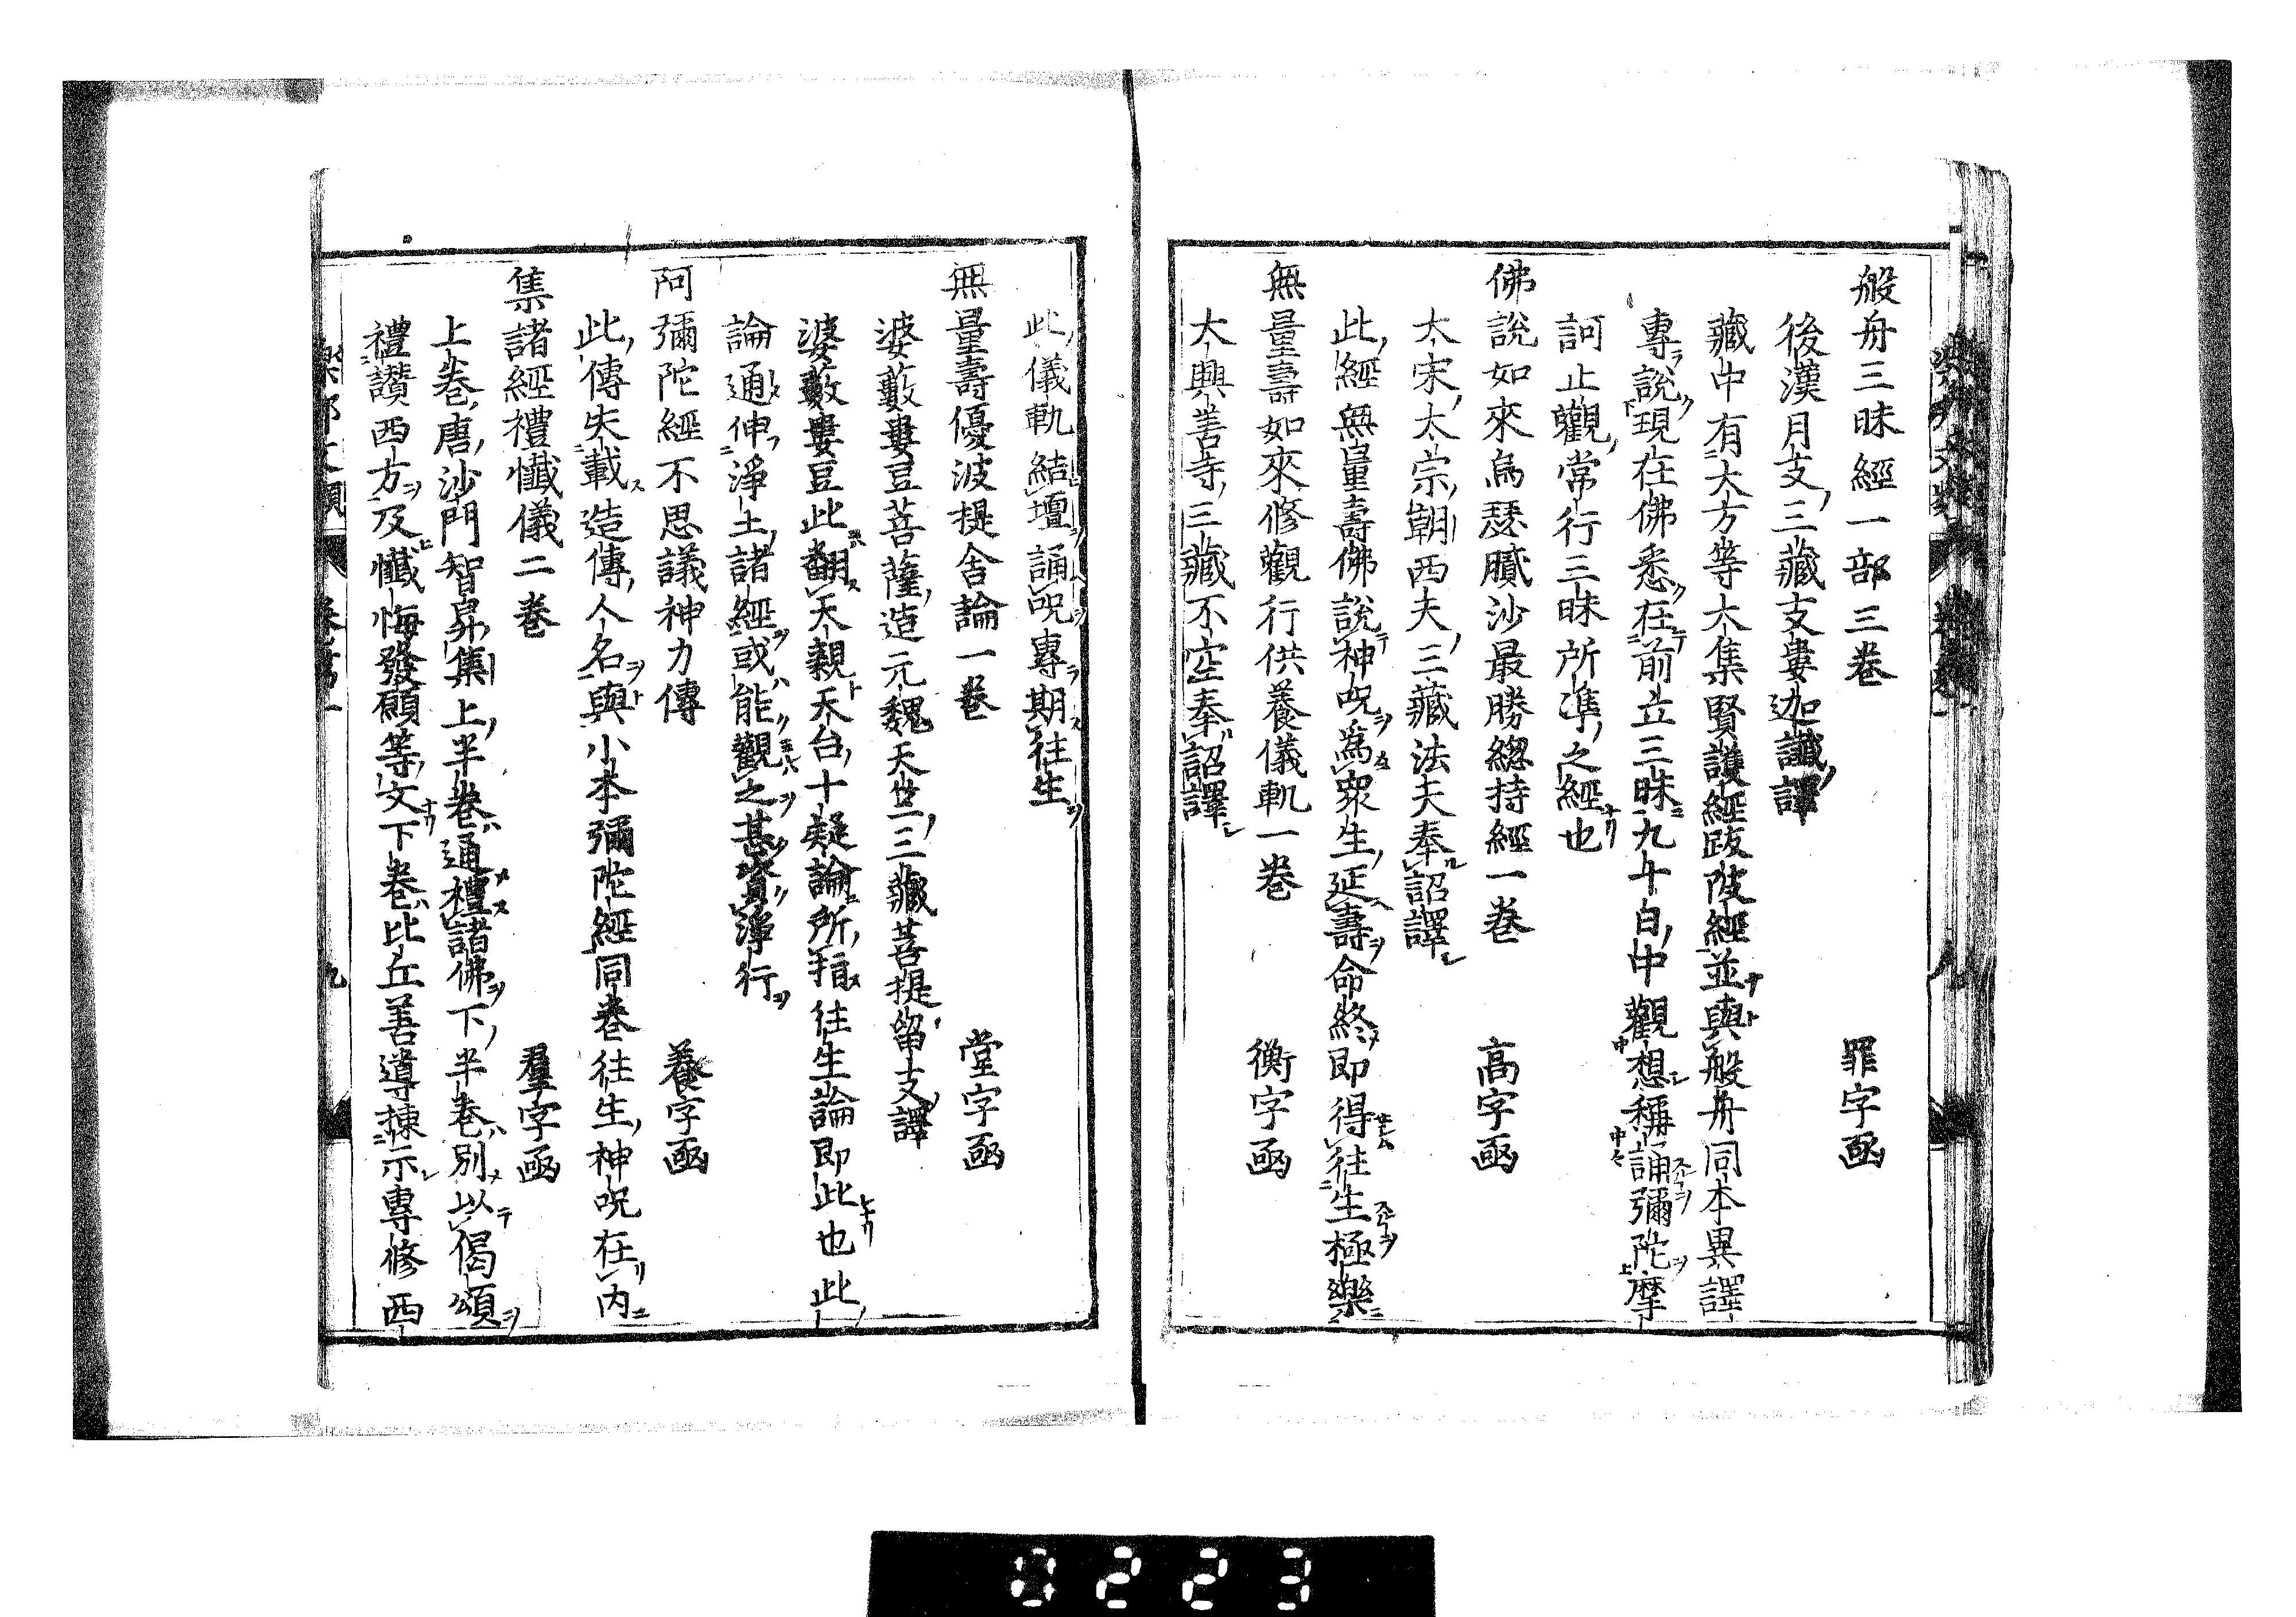 般舟三昧經一部三卷 罪字凾
後漢月支三藏支婁迦讖譯
藏中有大方等大集賢護經䟦陂經並與般舟同本異譯
專說現在佛悉在前立三昧九十日中觀想稱誦彌陀摩
訶止觀常行三昧所準之經也
佛說如來烏瑟膩沙最勝緫持經一卷 高字凾
大宋太宗朝西天三藏法天奉詔譯
此經無量壽佛說神呪爲衆生延壽命終即得往生極樂
無量壽如來修觀行供養儀軌一卷 衡字凾
大興善寺三藏不空奉詔譯
此儀軌結壇誦呪專期往生
無量壽優波提舍論一卷 堂字凾
婆藪婁豆菩薩造元魏天竺三藏菩提留支譯
婆藪婁豆此翻天親天台十疑論所指往生論即此也此
論通伸淨土諸經或能觀之甚資淨行
阿彌陀經不思議神力傳 養字凾
此傳失載造傳人名與小本彌陀經同卷往生神呪在內
集諸經禮懺儀二卷 羣字凾
上卷唐沙門智昇集上半卷通禮諸佛下半卷別以偈頌
禮讃西方及懺悔發願等文下卷比丘善導揀示專修西
樂邦文類 卷第一 九
0223